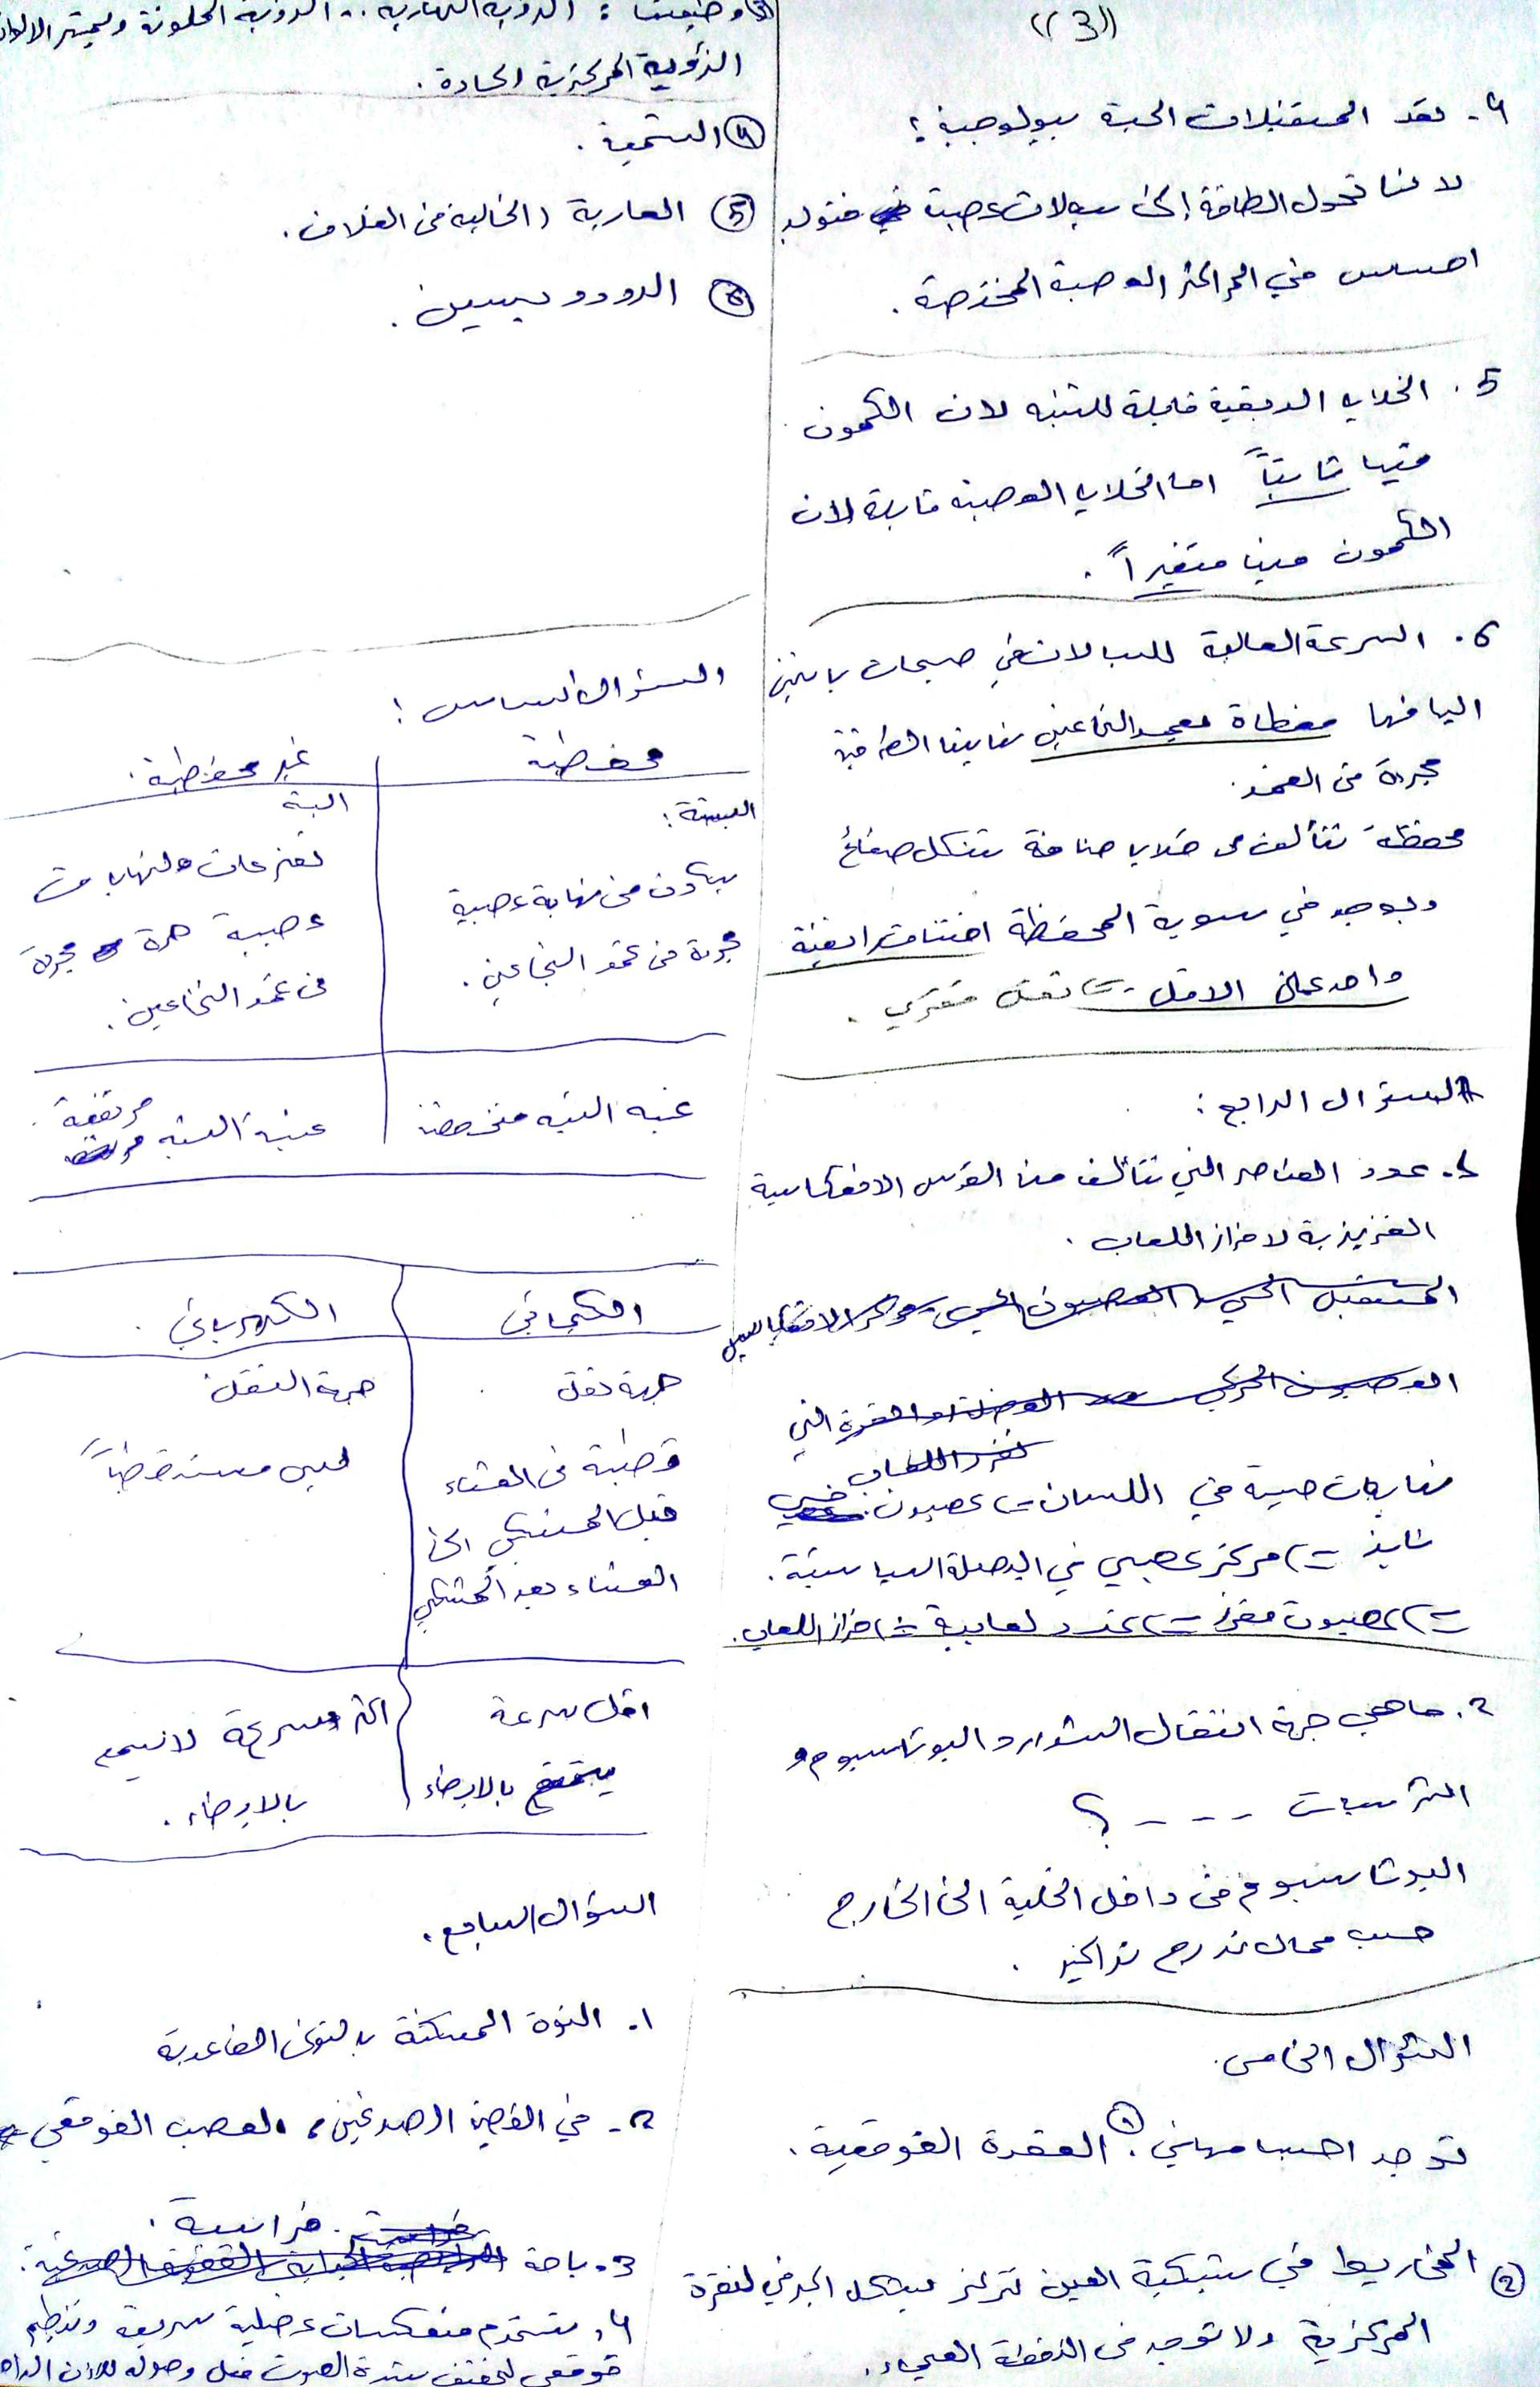 ((3))
4. تعد المستقبلات الحسية بيولوجية؛
لانها تحول الطاقة إلى سيالات عصبية فتولد
احساس في المراكز العصبية المختصة.
5. الخلايا الدبقية قابلة للتنبه لان الكمون
فيها ثابتاً اما الخلايا العصبية قابلة لان
الكمون فيها متغيراً.
6. السرعة العالية للسيالات في جسيمات باشيني
اليافها مغطاة بغمد النخاعين نهايتها الطرفية
مجردة من الغمد.
محفظة تتألف من خلايا ضامة بشكل صفائح
ويوجد في سوية المحفظة اختناق رانفية
واحد على الاقل => نقل قفزي.
السؤال الرابع:
1. عدد العناصر التي تتألف منها القوس الانعكاسية
الغريزية لافراز اللعاب.
المستقبل الحسي العصبون الحسي مركز الانعكاس
العصبون الحركي العضلة او الغدة التي
تفرز اللعاب
نهايات حسية في اللسان => عصبون حسي
نابذ => مركز عصبي في البصلة السيسائية.
=> عصبون مفرز => غدد لعابية => افراز اللعاب.
2. ما هي جهة انتقال الشوارد البوتاسيوم
الترسبات - - - ؟
البوتاسيوم من داخل الخلية الى الخارج
حسب ممال تدرج تراكيز.
السؤال الخامس.
توجد اجسام نيسل: ① العقدة القوقعية.
② المخاريط في شبكية العين تتركز بشكل في الحفرة
المركزية ولا توجد في النقطة العمياء.
③ وظيفتها: الرؤية النهارية .. الرؤية الملونة وتمييز الالوان
الرؤية المركزية الحادة.
④ الشمية.
⑤ العارية (الخالية من الغلاف.
⑥ الرودوبسين.
السؤال السادس:
محفظية
غير محفظية.
البنية:
البنية
يتكون من نهاية عصبية
مجردة من غمد النخاعين.
تفرعات ونهايات
عصبية حرة مجردة
من غمد النخاعين.
عتبة التنبيه منخفضة
عتبة التنبيه مرتفعة.
الكيميائي
الكهربائي.
جهة نقل
قطبية من الغشاء
قبل المشبكي الى
الغشاء بعد المشبكي
جهة النقل:
ليس مستقطباً
اقل سرعة
يتمتع بالابطاء
اكثر سرعة لا يتمتع
بالابطاء.
السؤال السابع.
1. النوى القاعدية
2. في الفصين الصدغيين، العصب القوقعي
3. باحة فراسية.
4. تستخدم منعكسات عضلية سريعة وتنظيم
قوقعي لتخفيف شدة الصوت قبل وصوله للاذن